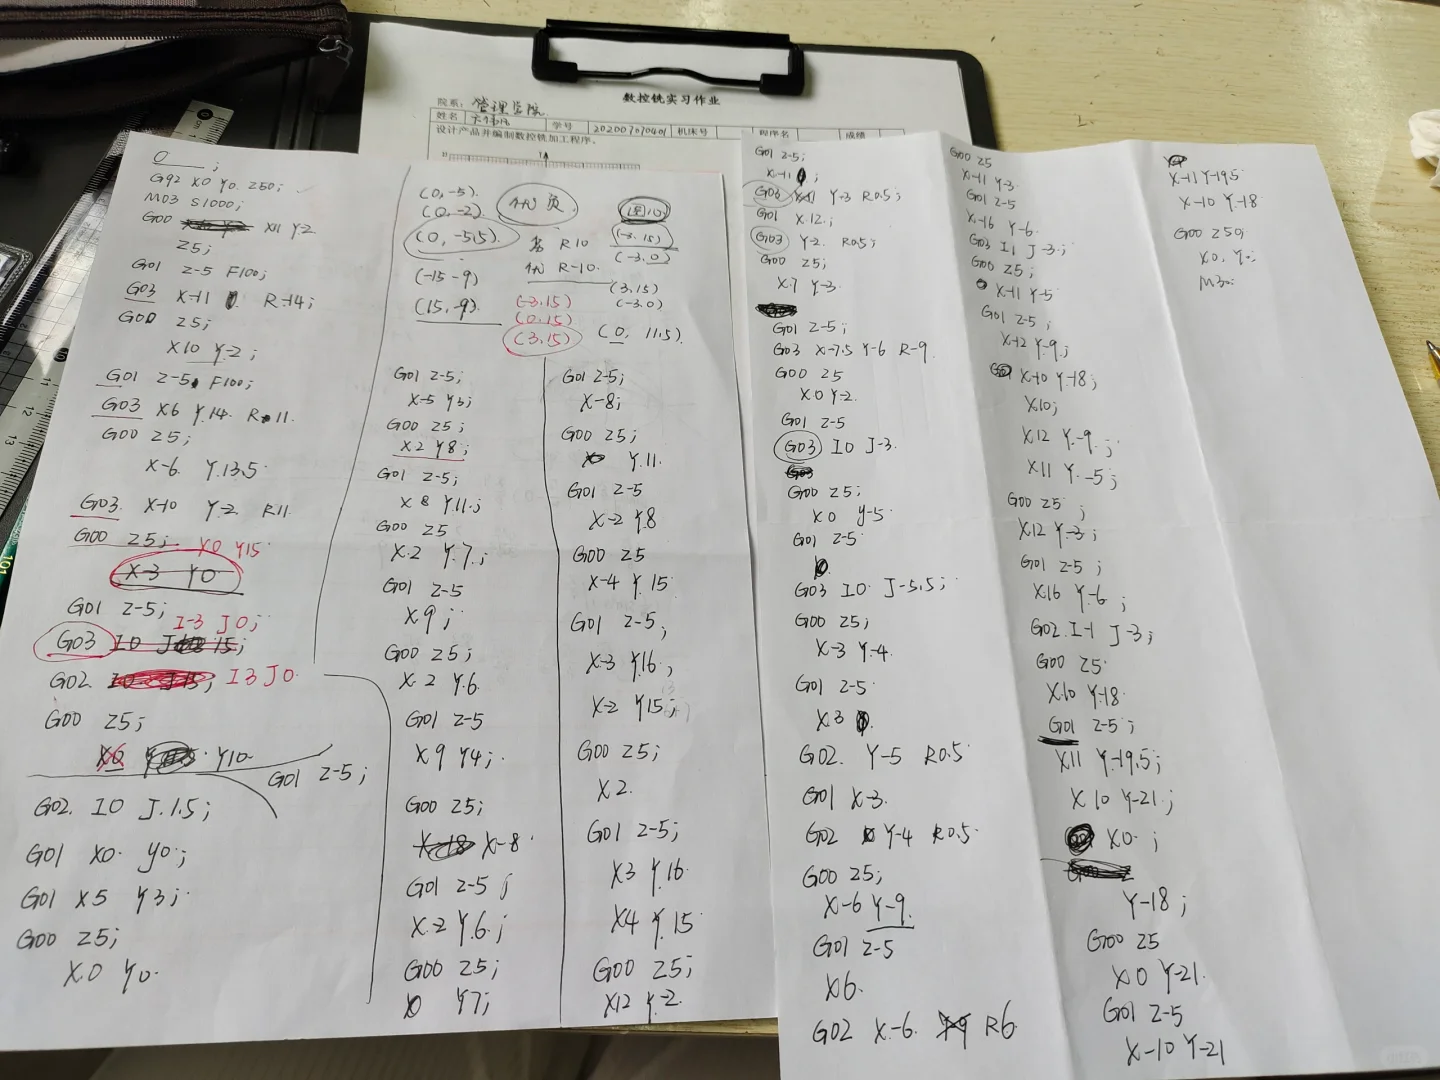 数控铣实习作业
院系: 管理学院
姓名 学号 202007070401 机床号 程序名 成绩
设计产品并编制数控铣加工程序。
O ;
G92 X0 Y0. Z50;
M03 S1000;
G00 X11 Y-2
Z5;
G01 Z-5 F100;
G03 X-11 R-14;
G00 Z5;
X10 Y-2;
G01 Z-5 F100;
G03 X6 Y.14. R.11.
G00 Z5;
X-6. Y.13.5.
G03. X-10 Y-2. R11.
G00 Z5; X0 Y15
X-3 Y0
G01 Z-5;
I-3 J0;
G03 I0 J 15;
G02. I0 J15; I3 J0.
G00 Z5;
X0 Y10.
G01 Z-5;
G02. I0 J.1.5;
G01 X0. Y0.;
G01 X5 Y3;
G00 Z5;
X.0 Y0.
(0,-5).
(0,-2).
(0,-5.5).
(-15-9)
(15,-9).
代 页
圆心
R10
R-10.
(-3.15)
(0.15)
(3.15)
(-3.15)
(-3.0)
(3,15)
(-3.0)
(0, 11.5).
G01 Z-5;
X-5 Y3;
G00 Z5;
X.2 Y8;
G01 Z-5;
X 8 Y.11.;
G00 Z5
X.2 Y.7.;
G01 Z-5
X.9;
G00 Z5;
X.2 Y.6.
G01 Z-5
X.9 Y4;
G00 Z5;
X-8.
G01 Z-5;
X-2 Y.6.;
G00 Z5;
Y7;
G01 Z-5;
X-8;
G00 Z5;
Y.11.
G01 Z-5
X-2 Y.8
G00 Z5
X-4 Y.15
G01 Z-5;
X-3 Y.16;
X-2 Y15;
G00 Z5;
X2.
G01 Z-5;
X3 Y.16
X4 Y.15
G00 Z5;
X12 Y-2.
G01 Z-5;
X-11 ;
G03 Y-3 R0.5;
G01 X.12.;
G03 Y-2. R0.5;
G00 Z5;
X.7 Y-3.
G01 Z-5;
G03 X-7.5 Y-6 R-9.
G00 Z5
X.0 Y-2.
G01 Z-5
G03 I0 J-3.
G00 Z5;
X0 Y-5.
G01 Z-5.
G03 I0 J-5.5;
G00 Z5;
X-3 Y-4.
G01 Z-5.
X.3
G02. Y-5 R0.5
G01 X-3.
G02 Y-4 R0.5.
G00 Z5;
X-6 Y-9.
G01 Z-5
X6.
G02 X-6. R6.
G00 Z5
X-11 Y-3.
G01 Z-5
X-16 Y-6.
G03 I1 J-3;
G00 Z5;
X-11 Y-5
G01 Z-5;
X-12 Y-9.;
X-10 Y-18;
X10;
X12 Y-9.;
X11 Y.-5;
G00 Z5;
X12 Y-3;
G01 Z-5;
X16 Y-6;
G02. I-1 J-3;
G00 Z5
X.10 Y-18.
G01 Z-5;
X11 Y-19.5;
X 10 Y-21.;
X0.;
Y-18;
G00 Z5
X0 Y-21.
G01 Z-5
X-10 Y-21
X-11 Y-19.5
X-10 Y-18
G00 Z50;
X0. Y0;
M30;